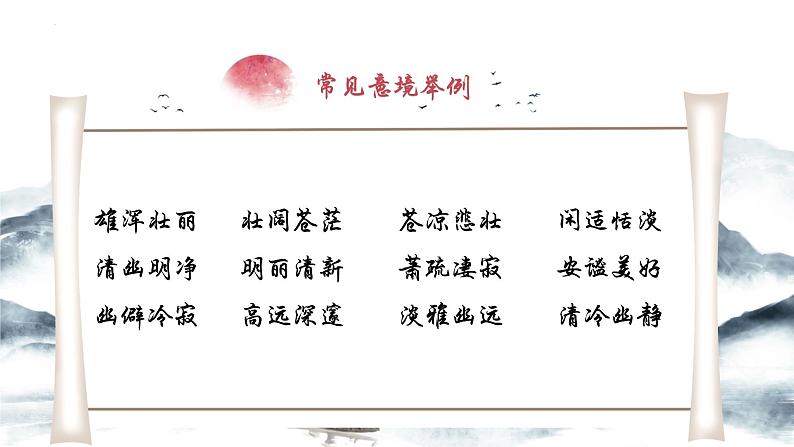 常见意境举例
雄浑壮丽 壮阔苍茫 苍凉悲壮 闲适恬淡
清幽明净 明丽清新 萧疏凄寂 安谧美好
幽僻冷寂 高远深邃 淡雅幽远 清冷幽静